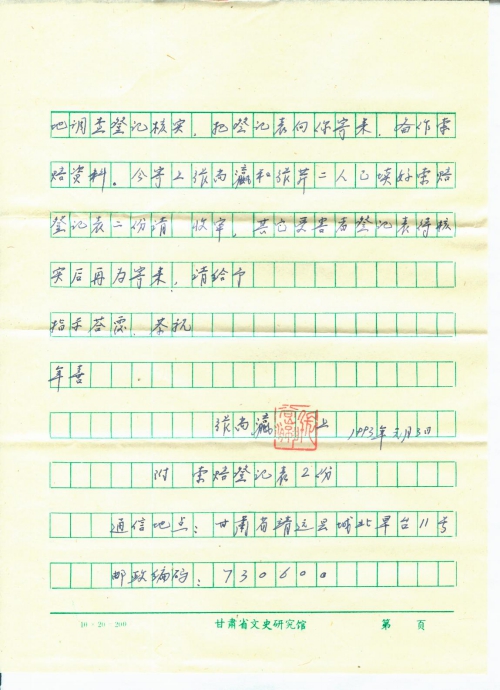 地调查登记核实，把登记表向你寄来，当作索
赔资料。今寄上张尚瀛和张莽二人已填好索赔
登记表二份请 收审，其它受害者登记表待核
实后再为寄来，请给予
指示答覆，恭祝
年喜
张尚瀛 上 1993年元月3日
附 索赔登记表2份
通信地点：甘肃省靖远县城北旱台11号
邮政编码：730600
10×20=200 甘肃省文史研究馆 第 页